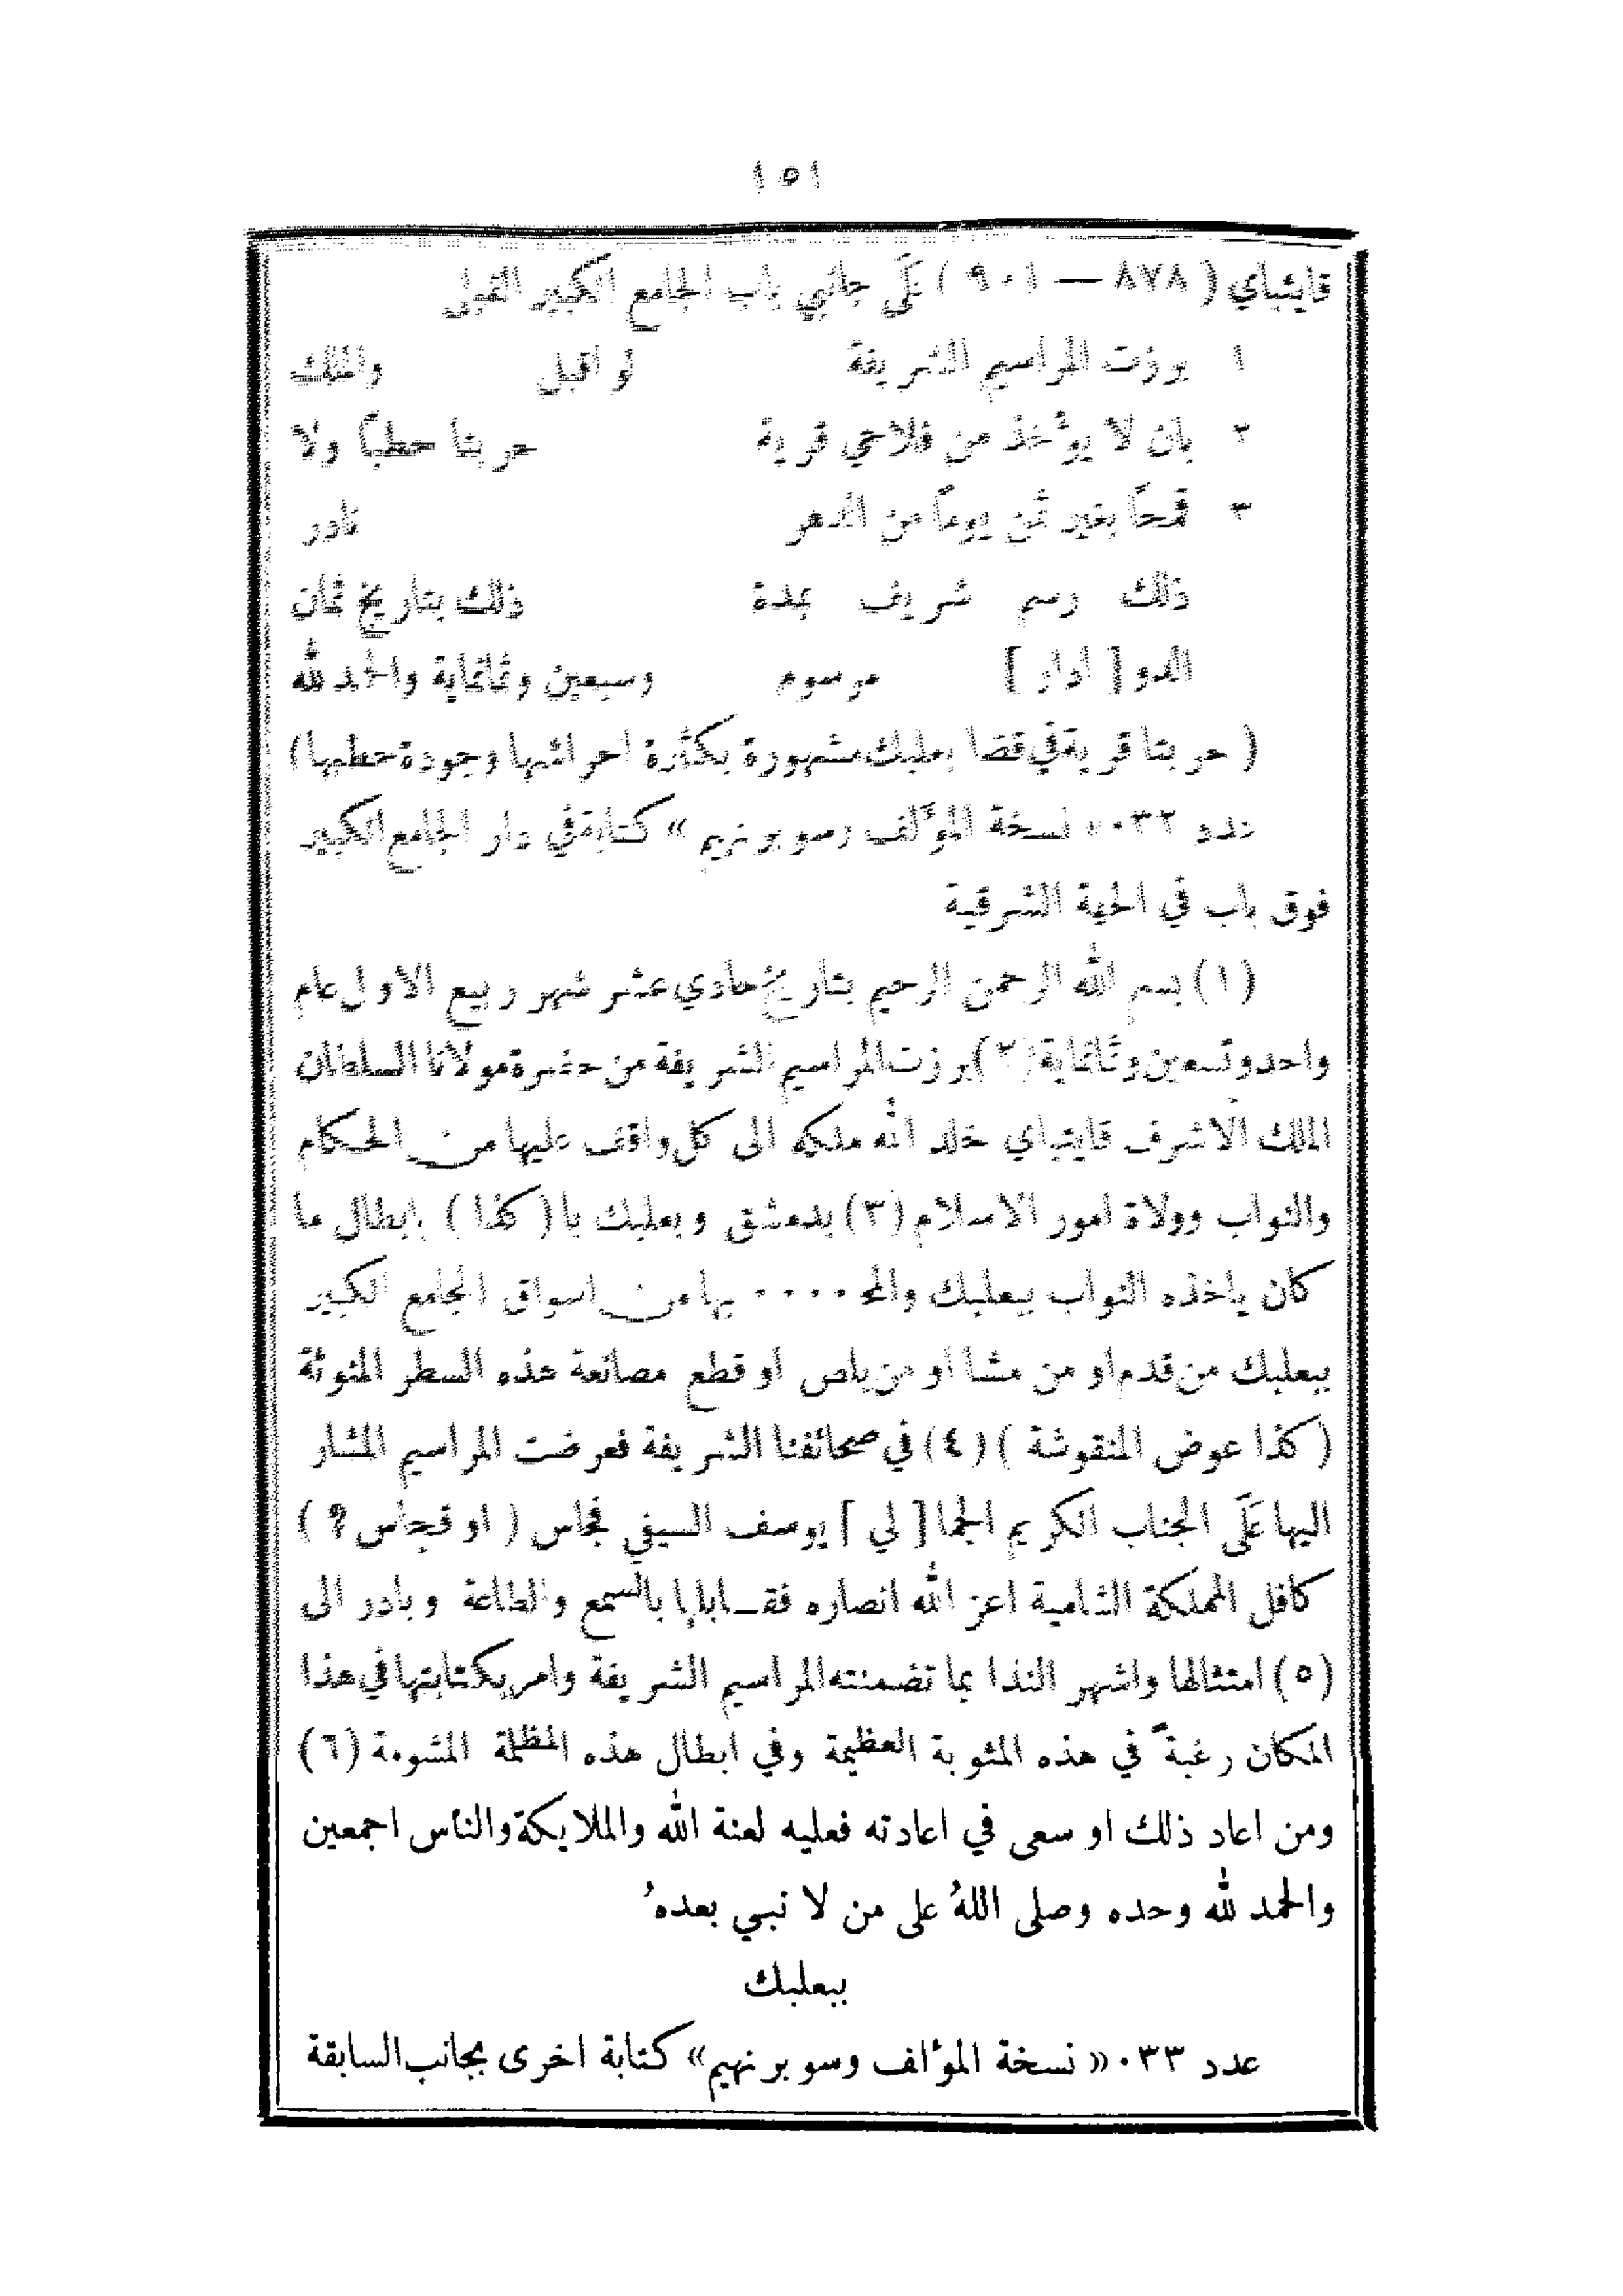 ١٥١
قايتباي ( ٨٧٨ — ٩٠١ ) عَلَى جانبي باب الجامع الكبير القبلي
١ برزت المراسيم الشريفة لو اقبل والملك
٢ بان لا يؤخذ من فلاحي قرية حربتا حطبًا ولا
٣ قمحًا بغير ثمن يومًا من الدهر نادر
ذلك رسم شريف بمدة ذلك بتاريخ ثمان
الدو[ ادار ] مرسوم وسبعين وثمانماية والحمد لله
( حربتا قرية في قضا بعلبك مشهورة بكثرة احراشها وجودة حطبها)
عدد ٠٣٢ « نسخة المؤلف وسوبرنهيم » كتابة في دار الجامع الكبير
فوق باب في الجهة الشرقية
(١) بسم الله الرحمن الرحيم بتاريخ حادي عشر شهر ربيع الاول عام
واحد وتسعين وثمانماية (٢) برزت المراسيم الشريفة من حضرة مولانا السلطان
الملك الاشرف قايتباي خلد الله ملكه الى كل واقف عليها من الحكام
والنواب وولاة امور الاسلام (٣) بدمشق وبعلبك با( كذا ) ابطال ما
كان ياخذه النواب ببعلبك والمح ٠٠٠٠ بها من اسواق الجامع الكبير
ببعلبك من قدم او من مشا او من بلص او قطع مصانعة هذه السطر المنوثة
( كذا عوض المنقوشة ) (٤) في صحائفنا الشريفة فعرضت المراسيم المشار
اليها عَلَى الجناب الكريم الجما[ لي ] يوسف السيفي قجماس ( او قجاس ؟ )
كافل المملكة الشامية اعز الله انصاره فقــابلها بالسمع والطاعة وبادر الى
(٥) امتثالها واشهر الندا بما تضمنته المراسيم الشريفة وامر بكتابتها في هذا
المكان رغبةً في هذه المثوبة العظيمة وفي ابطال هذه المظلمة المشومة (٦)
ومن اعاد ذلك او سعى في اعادته فعليه لعنة الله والملايكة والناس اجمعين
والحمد لله وحده وصلى اللهُ على من لا نبي بعدهُ
ببعلبك
عدد ٠٣٣ « نسخة المؤلف وسوبرنهيم » كتابة اخرى بجانب السابقة